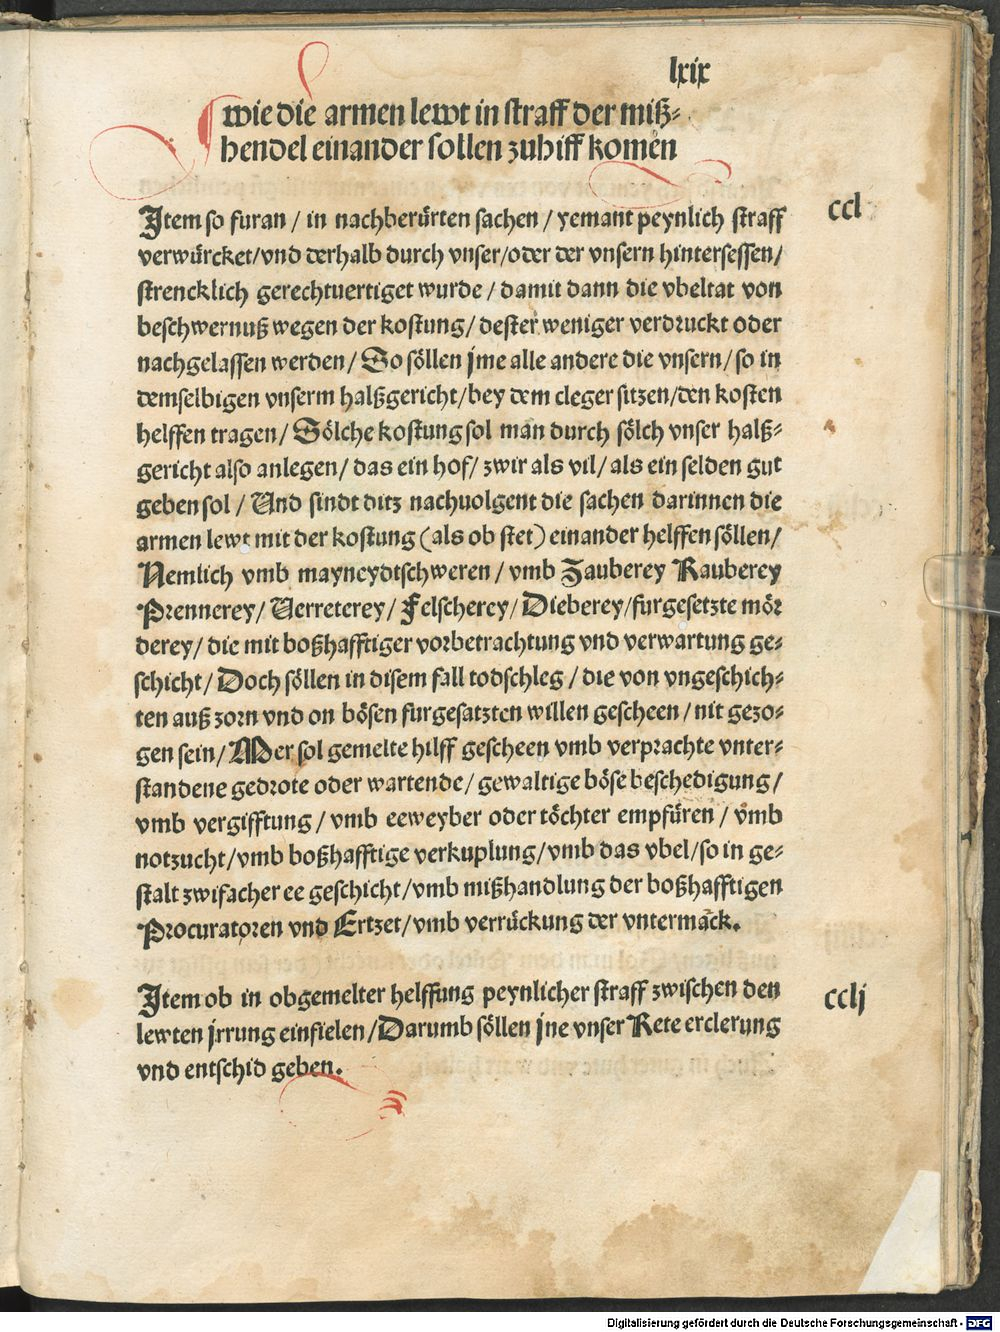 lxix
wie die armen lewt in straff der miß⸗
hendel einander sollen zuhiff komen
Item so furan / in nachberürten sachen / yemant peynlich straff
ccl
verwürcket/vnd derhalb durch vnser/oder der vnsern hintersessen/
strencklich gerechtuertiget wurde / damit dann die vbeltat von
beschwernuß wegen der kostung/ dester weniger verdruckt oder
nachgelassen werden/ So söllen jme alle andere die vnsern/ so in
demselbigen vnserm halßgericht/bey dem cleger sitzen/den kosten
helffen tragen/ Sölche kostung sol man durch sölch vnser halß⸗
gericht also anlegen/ das ein hof/ zwir als vil/ als ein selden gut
geben sol / Und sindt ditz nachuolgent die sachen darinnen die
armen lewt mit der kostung (als ob stet) einander helffen söllen/
Nemlich vmb mayneydtschweren / vmb Zauberey Rauberey
Prennerey/ Uerreterey/ Felscherey/ Dieberey/furgesetzte mör
derey/ die mit boßhafftiger vorbetrachtung vnd verwartung ge⸗
schicht/ Doch söllen in disem fall todschleg / die von vngeschich⸗
ten auß zorn vnd on bösen fürgesatzten willen gescheen/ nit gezo⸗
gen sein/ Mer sol gemelte hilff gescheen vmb verprachte vnter⸗
standene gedrote oder wartende/ gewaltige böse beschedigung/
vmb vergifftung / vmb eeweyber oder töchter empfüren / vmb
notzucht/vmb boßhafftige verkuplung/vmb das vbel/so in ge⸗
stalt zwifacher ee geschicht/vmb mißhandlung der boßhafftigen
Procuratoren vnd Ertzet/vmb verrückung der vntermarck.
Item ob in obgemelter helffung peynlicher straff zwischen den
cclj
lewten jrrung einfielen/Darumb söllen jne vnser Rete erclerung
vnd entschid geben.
Digitalisierung gefördert durch die Deutsche Forschungsgemeinschaft - DFG